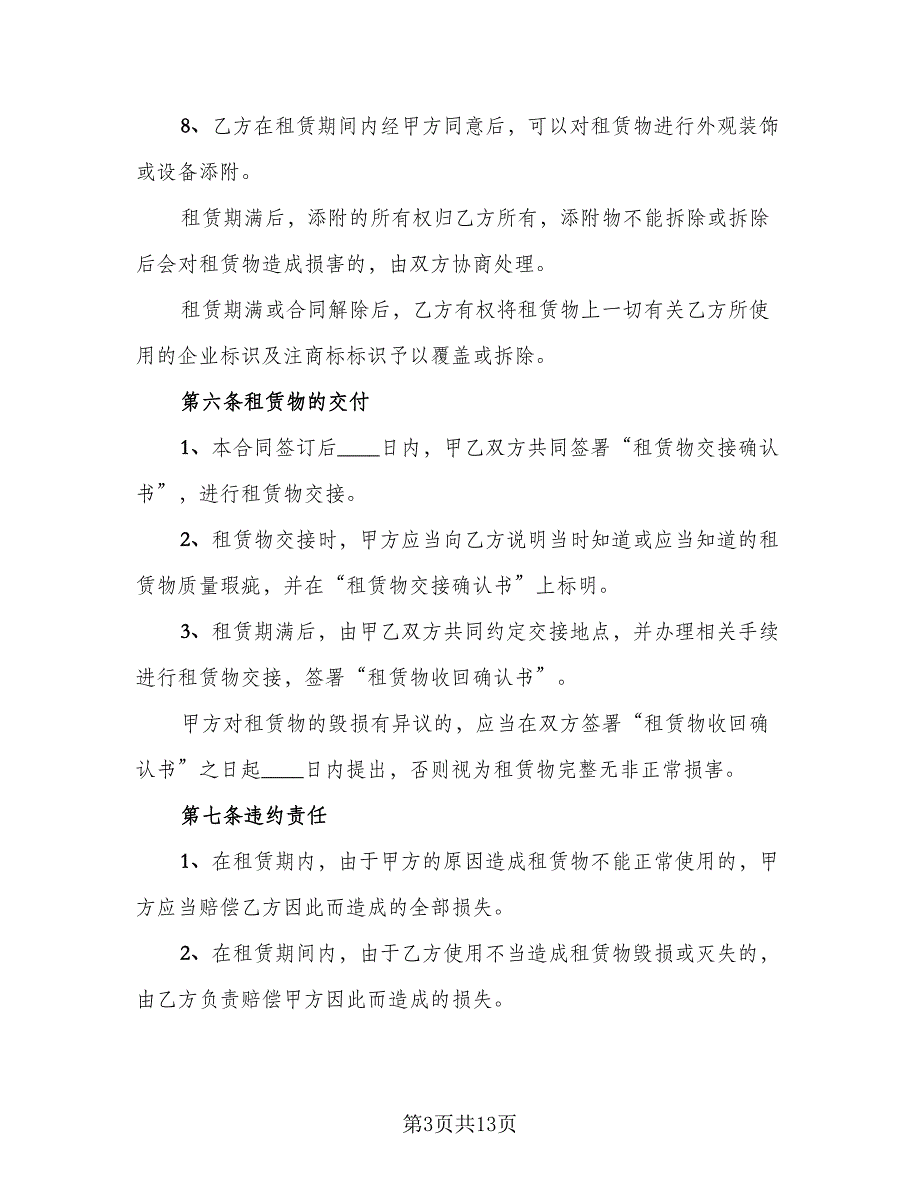 8、乙方在租赁期间内经甲方同意后，可以对租赁物进行外观装饰
或设备添附。
租赁期满后，添附的所有权归乙方所有，添附物不能拆除或拆除
后会对租赁物造成损害的，由双方协商处理。
租赁期满或合同解除后，乙方有权将租赁物上一切有关乙方所使
用的企业标识及注商标标识予以覆盖或拆除。
第六条租赁物的交付
1、本合同签订后____日内，甲乙双方共同签署“租赁物交接确认
书”，进行租赁物交接。
2、租赁物交接时，甲方应当向乙方说明当时知道或应当知道的租
赁物质量瑕疵，并在“租赁物交接确认书”上标明。
3、租赁期满后，由甲乙双方共同约定交接地点，并办理相关手续
进行租赁物交接，签署“租赁物收回确认书”。
甲方对租赁物的毁损有异议的，应当在双方签署“租赁物收回确
认书”之日起____日内提出，否则视为租赁物完整无非正常损害。
第七条违约责任
1、在租赁期内，由于甲方的原因造成租赁物不能正常使用的，甲
方应当赔偿乙方因此而造成的全部损失。
2、在租赁期间内，由于乙方使用不当造成租赁物毁损或灭失的，
由乙方负责赔偿甲方因此而造成的损失。
第3页共13页